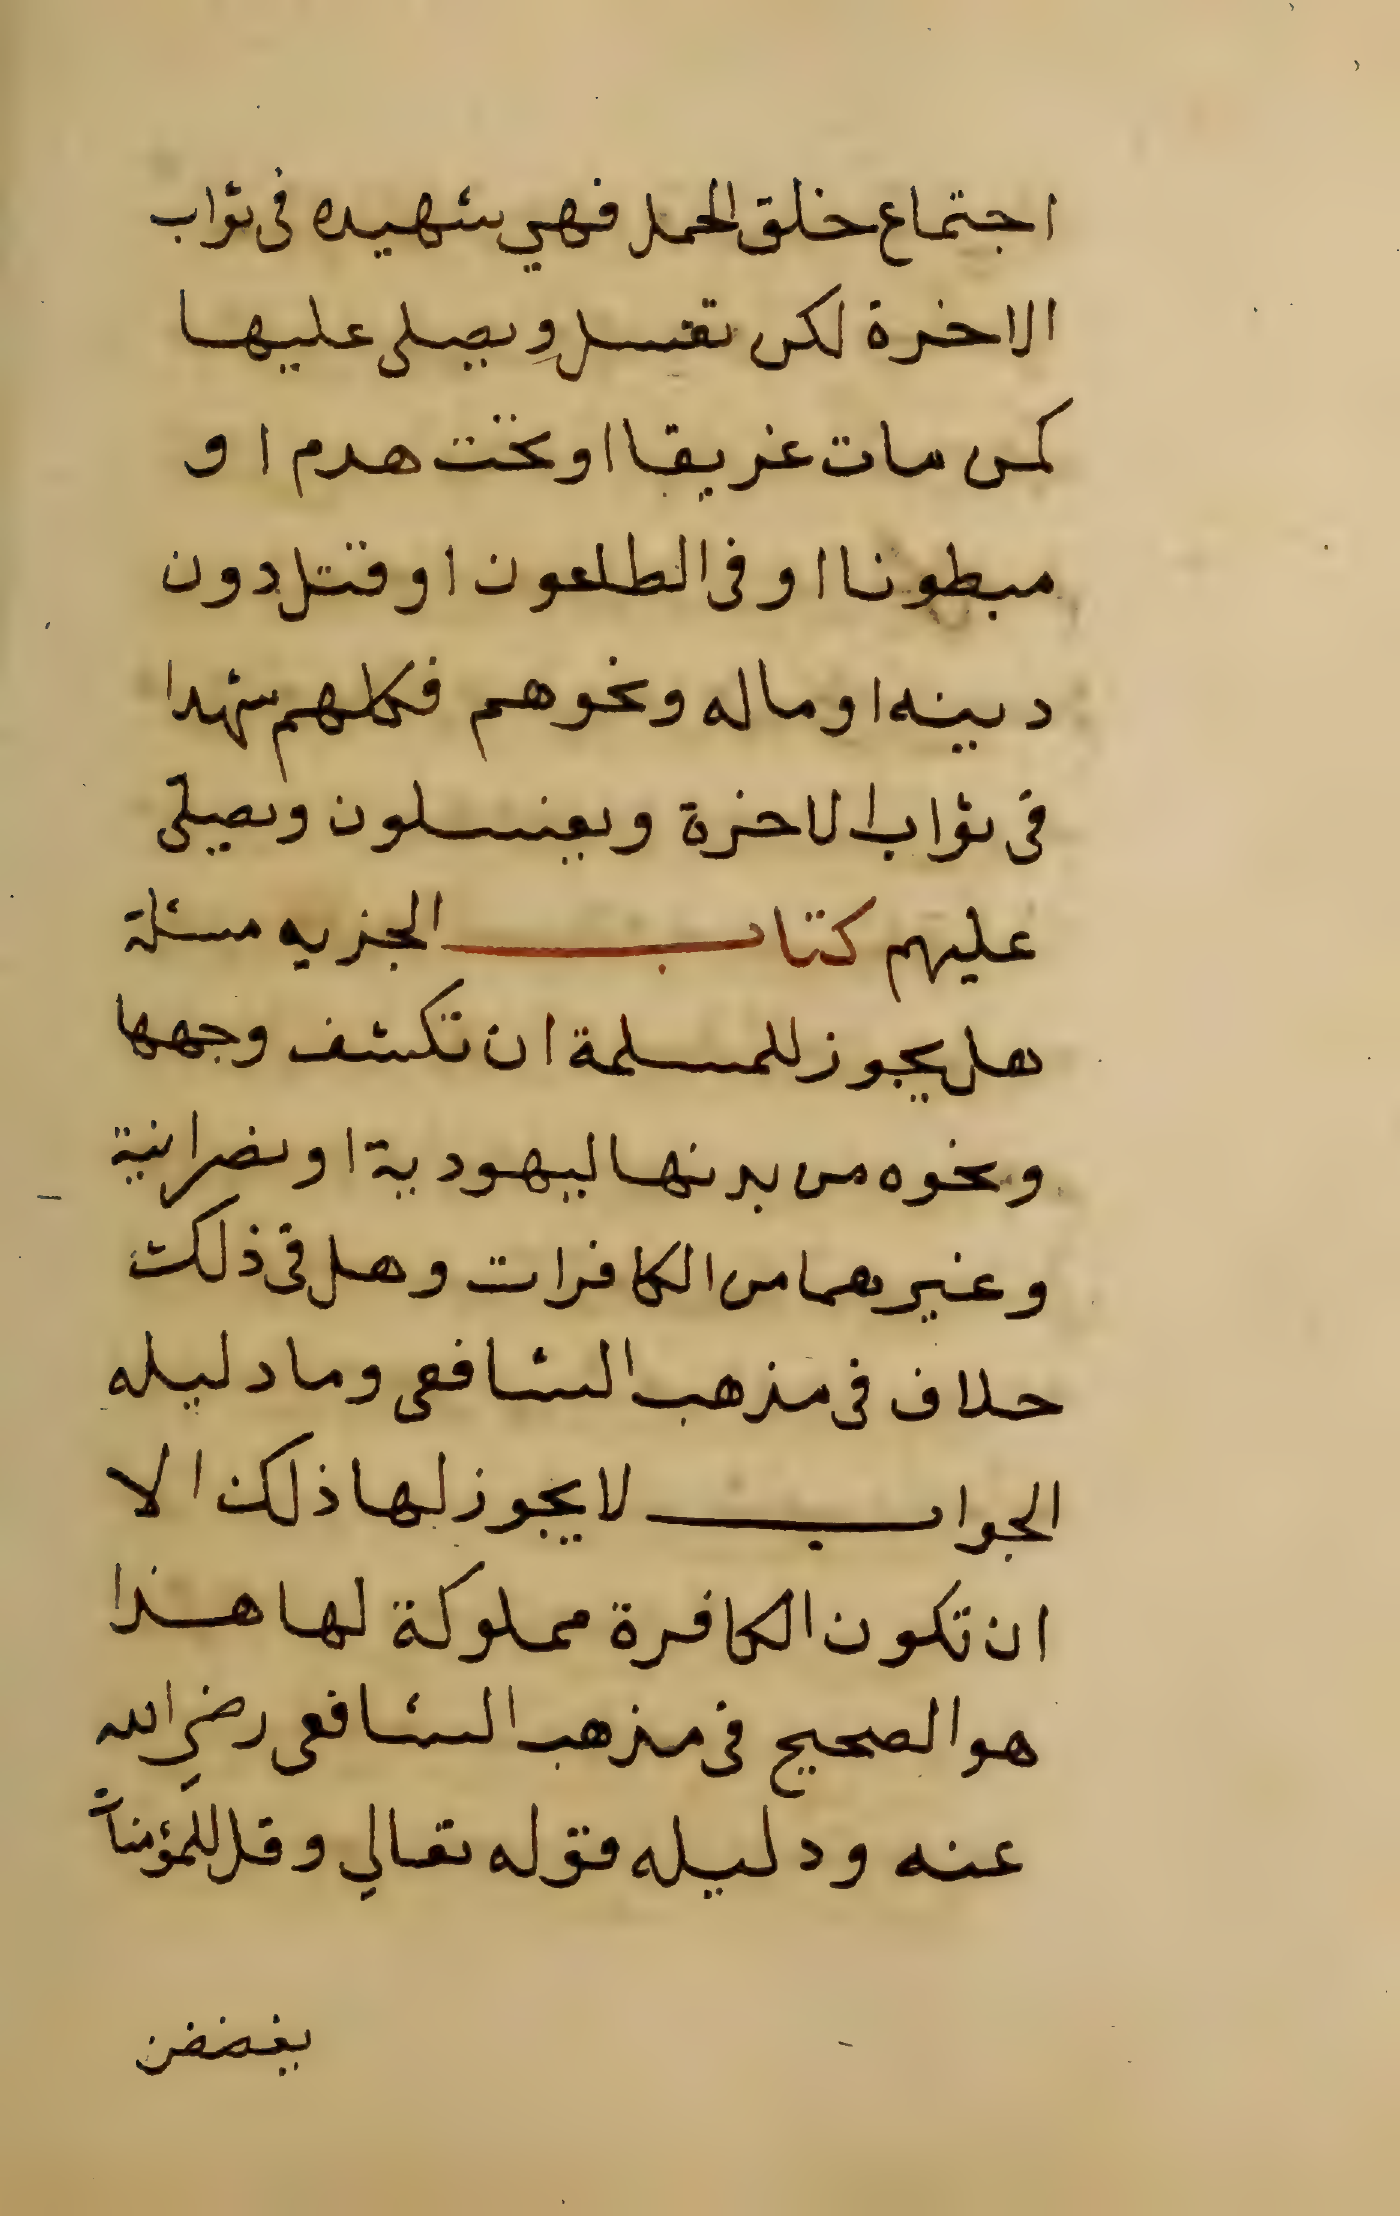 اجتماع خلق الحمل فهي شهيده فى ثواب
الاخرة لكن تغسل ويصلى عليها
كمن مات غريقا او تحت هدم او
مبطونا او فى الطاعون او قتل دون
دينه او ماله ونحوهم فكلهم شهدا
فى ثواب الاخرة ويغسلون ويصلى
عليهم كتاب الجزيه مسئلة
هل يجوز للمسلمة ان تكشف وجهها
ونحوه من بدنها ليهودية او نصرانية
وغيرهما من الكافرات وهل فى ذلك
خلاف فى مذهب الشافعى وما دليله
الجواب لا يجوز لها ذلك الا
ان تكون الكافرة مملوكة لها هذا
هو الصحيح فى مذهب الشافعى رضي الله
عنه ودليله قوله تعالي وقل للمؤمنات
يغضضن